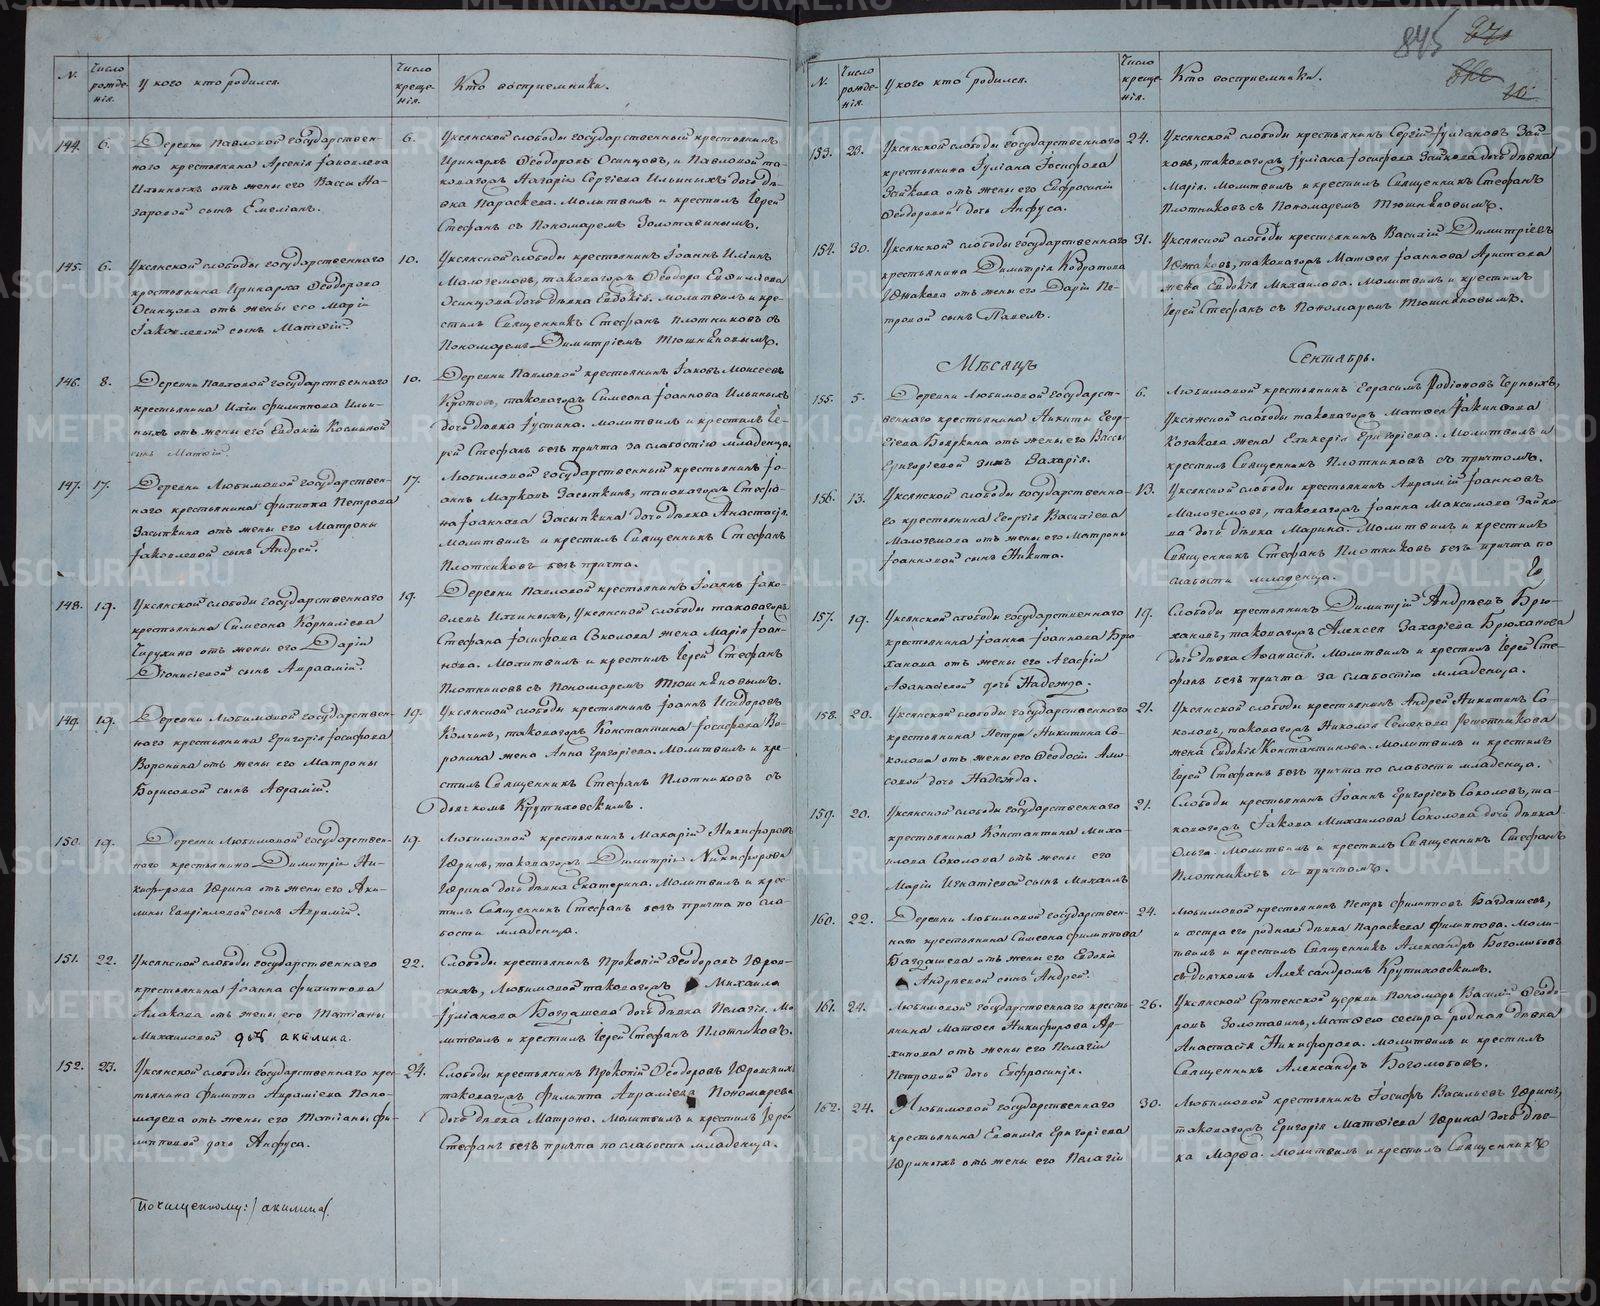 845
N.
Число рожде-нія.
У кого кто родился.
Число креще-нія.
Кто восприемники.
144. 6.
Деревни Павловой государствен-
наго крестьянина Арсенія Іаковлева
Ильиныхъ отъ жены его Вассы На-
заровой сынъ Емеліанъ.
6.
Уксянской слободы государственный крестьянинъ
Иринархъ Ѳеодоровъ Осинцовъ, и Павловой та-
коваго Назарія Сергіева Ильиныхъ дочь дѣ-
вка Параскева. Молитвилъ и крестилъ Іерей
Стефанъ съ Пономаремъ Золотавинымъ.
145. 6.
Уксянской слободы государственнаго
крестьянина Иринарха Ѳеодорова
Осинцова отъ жены его Маріи
Іаковлевой сынъ Матѳій.
10.
Уксянской слободы крестьянинъ Іоаннъ Иліинъ
Малоземовъ, таковагожъ Ѳеодора Евѳиміева
Осинцова дочь дѣвка Евдокія. Молитвилъ и кре-
стилъ Священникъ Стефанъ Плотниковъ съ
Пономаремъ Димитріемъ Тюшняковымъ.
146. 8.
Деревни Павловой государственнаго
крестьянина Иліи Филиппова Ильи-
ныхъ отъ жены его Евдокіи Косминой
сынъ Матѳій.
10.
Деревни Павловой крестьянинъ Іаковъ Моисеевъ
Кротовъ, таковагожъ Симеона Іоаннова Ильиныхъ
дочь дѣвка Іустина. Молитвилъ и крестилъ Іе-
рей Стефанъ безъ причта за слабостію младенца.
147. 17.
Деревни Любимовой государствен-
наго крестьянина Филиппа Петрова
Засыпкина отъ жены его Матроны
Іаковлевой сынъ Андрей.
17.
Любимовой государственный крестьянинъ Іо-
аннъ Марковъ Засыпкинъ, таковагожъ Стефа-
на Іоаннова Засыпкина дочь дѣвка Анастасія.
Молитвилъ и крестилъ Священникъ Стефанъ
Плотниковъ безъ причта.
148. 19.
Уксянской слободы государственнаго
крестьянина Симеона Корниліева
Чирухина отъ жены его Даріи
Діонисіевой сынъ Авраамій.
19.
Деревни Павловой крестьянинъ Іоаннъ Іако-
влевъ Ильиныхъ, Уксянской слободы таковагожъ
Стефана Іосифова Соколова жена Марія Іоан-
нова. Молитвилъ и крестилъ Іерей Стефанъ
Плотниковъ съ Пономаремъ Тюшняковымъ.
149. 19.
Деревни Любимовой государствен-
наго крестьянина Григорія Іосифова
Воронина отъ жены его Матроны
Борисовой сынъ Аврамій.
19.
Уксянской слободы крестьянинъ Іоаннъ Исидоровъ
Колчинъ, таковагожъ Константина Іосифова Во-
ронина жена Анна Григоріева. Молитвилъ и кре-
стилъ Священникъ Стефанъ Плотниковъ съ
Дьячкомъ Крутиховскимъ.
150. 19.
Деревни Любимовой государствен-
наго крестьянина Димитрія Ни-
кифорова Юрина отъ жены его Аки-
лины Гавріиловой сынъ Аврамій.
19.
Любимовой крестьянинъ Макарій Никифоровъ
Юринъ, таковагожъ Димитрія Никифорова
Юрина дочь дѣвка Екатерина. Молитвилъ и кре-
стилъ Священникъ Стефанъ безъ причта по сла-
бости младенца.
151. 22.
Уксянской слободы государственнаго
крестьянина Іоанна Филиппова
отъ жены его Татіаны
Михаиловой дочь акилина.
22.
Слободы крестьянинъ Прокопій Ѳеодоровъ Юров-
скихъ, Любимовой таковагожъ Михаила
Іуліанова Богдашева дочь дѣвка Пелагія. Мо-
литвилъ и крестилъ Іерей Стефанъ Плотниковъ.
152. 23.
Уксянской слободы государственнаго кре-
стьянина Филиппа Авраміева Поно-
марева отъ жены его Татіаны Фи-
липповой дочь Анфуса.
24.
Слободы крестьянинъ Прокопій Ѳеодоровъ Юровскихъ
таковагожъ Филиппа Авраміева Пономарева
дочь дѣвка Матрона. Молитвилъ и крестилъ Іерей
Стефанъ безъ причта по слабости младенца.
По чищенному: / акилина /.
N.
Число рожде-нія.
У кого кто родился.
Число креще-нія.
Кто восприемники.
153. 23.
Уксянской слободы государственнаго
крестьянина Іуліана Іосифова
Зайкова отъ жены его Евфросиніи
Ѳеодоровой дочь Анфуса.
24.
Уксянской слободы крестьянинъ Сергій Іуліановъ Зай-
ковъ, таковагожъ Іуліана Іосифова Зайкова дочь дѣвка
Марія. Молитвилъ и крестилъ Священникъ Стефанъ
Плотниковъ съ Пономаремъ Тюшняковымъ.
154. 30.
Уксянской слободы государственнаго
крестьянина Димитрія Кодратова
Южакова отъ жены его Даріи Пе-
тровой сынъ Павелъ.
31.
Уксянской слободы крестьянинъ Василій Димитріевъ
Южаковъ, таковагожъ Матѳея Іоаннова Аристова
жена Евдокія Михаилова. Молитвилъ и крестилъ
Іерей Стефанъ съ Пономаремъ Тюшняковымъ.
Мѣсяцъ Сентябрь.
155. 5.
Деревни Любимовой государст-
веннаго крестьянина Никиты Геор-
гіева Бояркина отъ жены его Вассы
Григоріевой сынъ Захарія.
6.
Любимовой крестьянинъ Герасимъ Родіоновъ Черныхъ,
Уксянской слободы таковагожъ Матѳея Іакинѳова
Козакова жена Гликерія Григоріева. Молитвилъ и
крестилъ Священникъ Плотниковъ съ причтомъ.
156. 13.
Уксянской слободы государственна-
го крестьянина Георгія Василіева
Малоземова отъ жены его Матроны
Іоанновой сынъ Никита.
13.
Уксянской слободы крестьянинъ Аврамій Іоанновъ
Малоземовъ, таковагожъ Іоанна Максимова Зайко-
ва дочь дѣвка Марина. Молитвилъ и крестилъ
Священникъ Стефанъ Плотниковъ безъ причта по
слабости младенца.
157. 19.
Уксянской слободы государственнаго
крестьянина Іоанна Іоаннова Брю-
ханова отъ жены его Агафіи
Аѳанасіевой дочь Надежда.
19.
Слободы крестьянинъ Димитрій Андреевъ Брю-
хановъ, таковагожъ Алексея Захаріева Брюханова
дочь дѣвка Аѳанасія. Молитвилъ и крестилъ Іерей Сте-
фанъ безъ причта за слабостію младенца.
158. 20.
Уксянской слободы государственнаго
крестьянина Петра Никитина Со-
колова отъ жены его Ѳеодосіи
дочь Надежда.
21.
Уксянской слободы крестьянинъ Андрей Никитинъ Со-
коловъ, таковагожъ Николая Семенова Решетникова
жена Евдокія Константинова. Молитвилъ и крестилъ
Іерей Стефанъ безъ причта по слабости младенца.
159. 20.
Уксянской слободы государственнаго
крестьянина Константина Миха-
илова Соколова отъ жены его
Маріи Игнатіевой сынъ Михаилъ
21.
Слободы крестьянинъ Іоаннъ Григоріевъ Соколовъ, та-
ковагожъ Іакова Михаилова Соколова дочь дѣвка
Ольга. Молитвилъ и крестилъ Священникъ Стефанъ
Плотниковъ съ причтомъ.
160. 22.
Деревни Любимовой государствен-
наго крестьянина Симеона Филиппова
Багдашева отъ жены его Евдокіи
Андреевой сынъ Андрей.
24.
Любимовой крестьянинъ Петръ Филипповъ Багдашевъ,
и сестра его родная дѣвка Параскева Филиппова. Моли-
твилъ и крестилъ Священникъ Александръ Боголюбовъ
съ дьячкомъ Александромъ Крутиховскимъ.
161. 24.
Любимовой государственнаго кресть-
янина Матѳея Никифорова Ар-
хипова отъ жены его Пелагіи
Петровой дочь Евфросинія.
26.
Уксянской Срѣтенской церкви Пономарь Василій Ѳеодо-
ровъ Золотавинъ, Матѳею сестра родная дѣвка
Анастасія Никифорова. Молитвилъ и крестилъ
Священникъ Александръ Боголюбовъ.
162. 24.
Любимовой государственнаго
крестьянина Евѳимія Григоріева
Юриныхъ отъ жены его Пелагіи
30.
Любимовой крестьянинъ Іосифъ Васильевъ Юринъ,
таковагожъ Григорія Матѳіева Юрина дочь дѣв-
ка Марѳа. Молитвилъ и крестилъ Священникъ